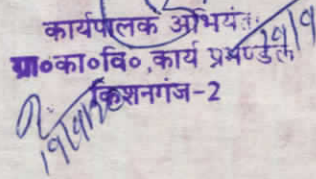 कार्यपालक अभियंता
ग्रा०का०वि०,कार्य प्रमण्डल
किशनगंज-2